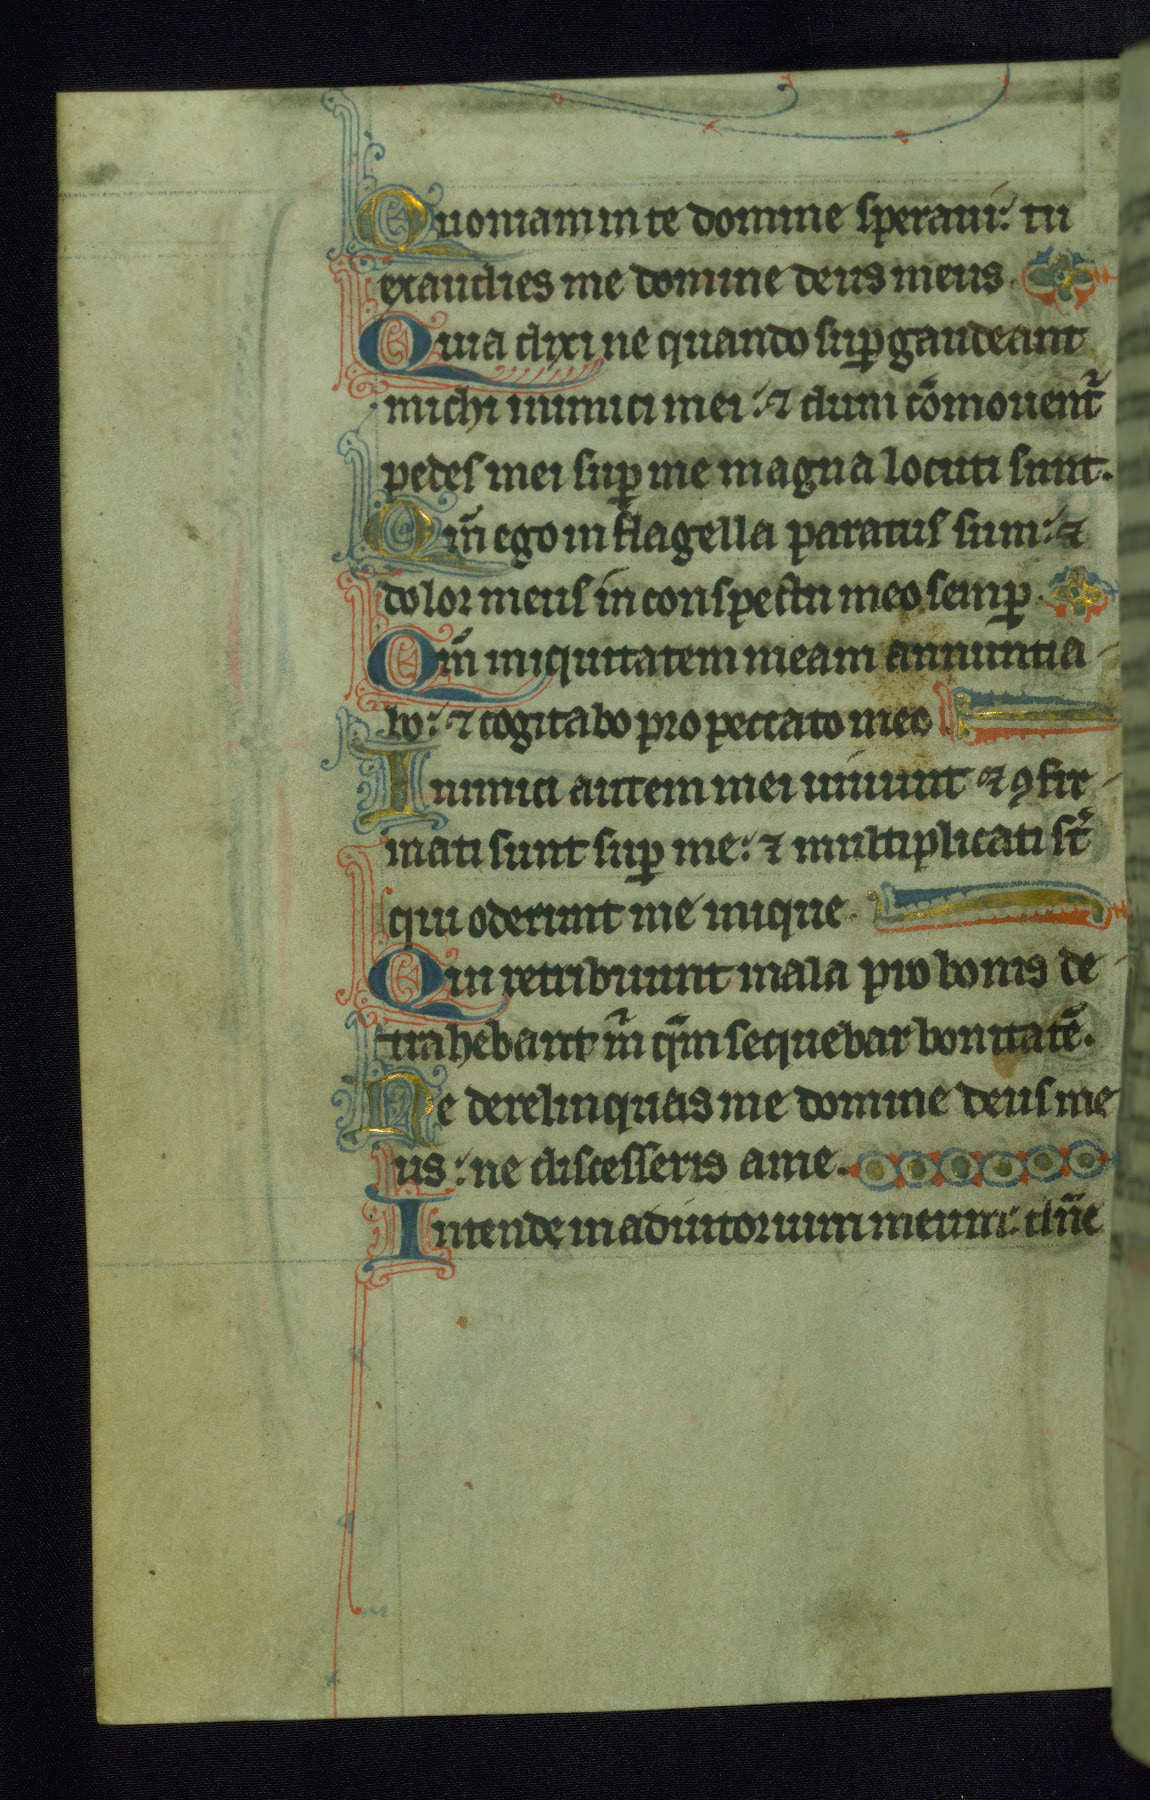 Quoniam in te domine speraui: tu
exaudies me domine deus meus.
Quia dixi ne quando sup̱ gaudeant
michi inimici mei: ⁊ dum cōmouent᷑
pedes mei sup̱ me magna locuti sunt.
Qm̄ ego in flagella paratus sum: ⁊
dolor meus in conspectu meo semp̱.
Qm̄ iniquitatem meam annuntia-
bo: ⁊ cogitabo pro peccato meo
Inimici autem mei uiuunt ⁊ ꝯfir-
mati sunt sup̱ me: ⁊ multiplicati st̄
qui oderunt me inique.
Qui retribuunt mala pro bonis de-
trahebant m̄ qm̄ sequebar bonitatē.
Ne derelinquas me domine deus me
us: ne discesseris a me.
Intende in adiutorium meum: dn̄e